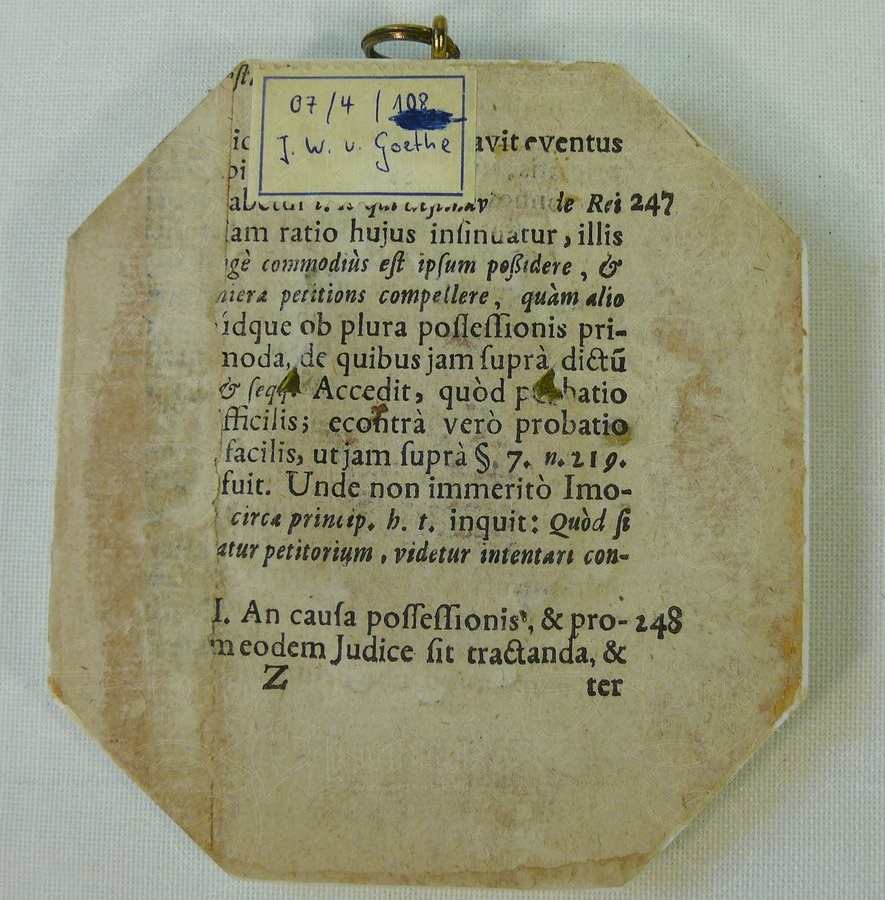 07/4 / 108
J. W. v. Goethe
avit eventus
de Rei 247
am ratio hujus inſinuatur, illis
gè commodiùs eſt ipſum poßidere, &
petitions compellere, quàm alio
idque ob plura poſſeſſionis pri-
noda, de quibus jam ſuprà dictū
& ſeqq. Accedit, quòd probatio
fficilis; econtrà verò probatio
facilis, ut jam ſuprà §. 7. n. 219.
fuit. Unde non immeritò Imo-
circa princip. h. t. inquit: Quòd ſi
atur petitorium, videtur intentari con-
I. An cauſa poſſeſſionis, & pro- 248
m eodem Judice ſit tractanda, &
Z ter